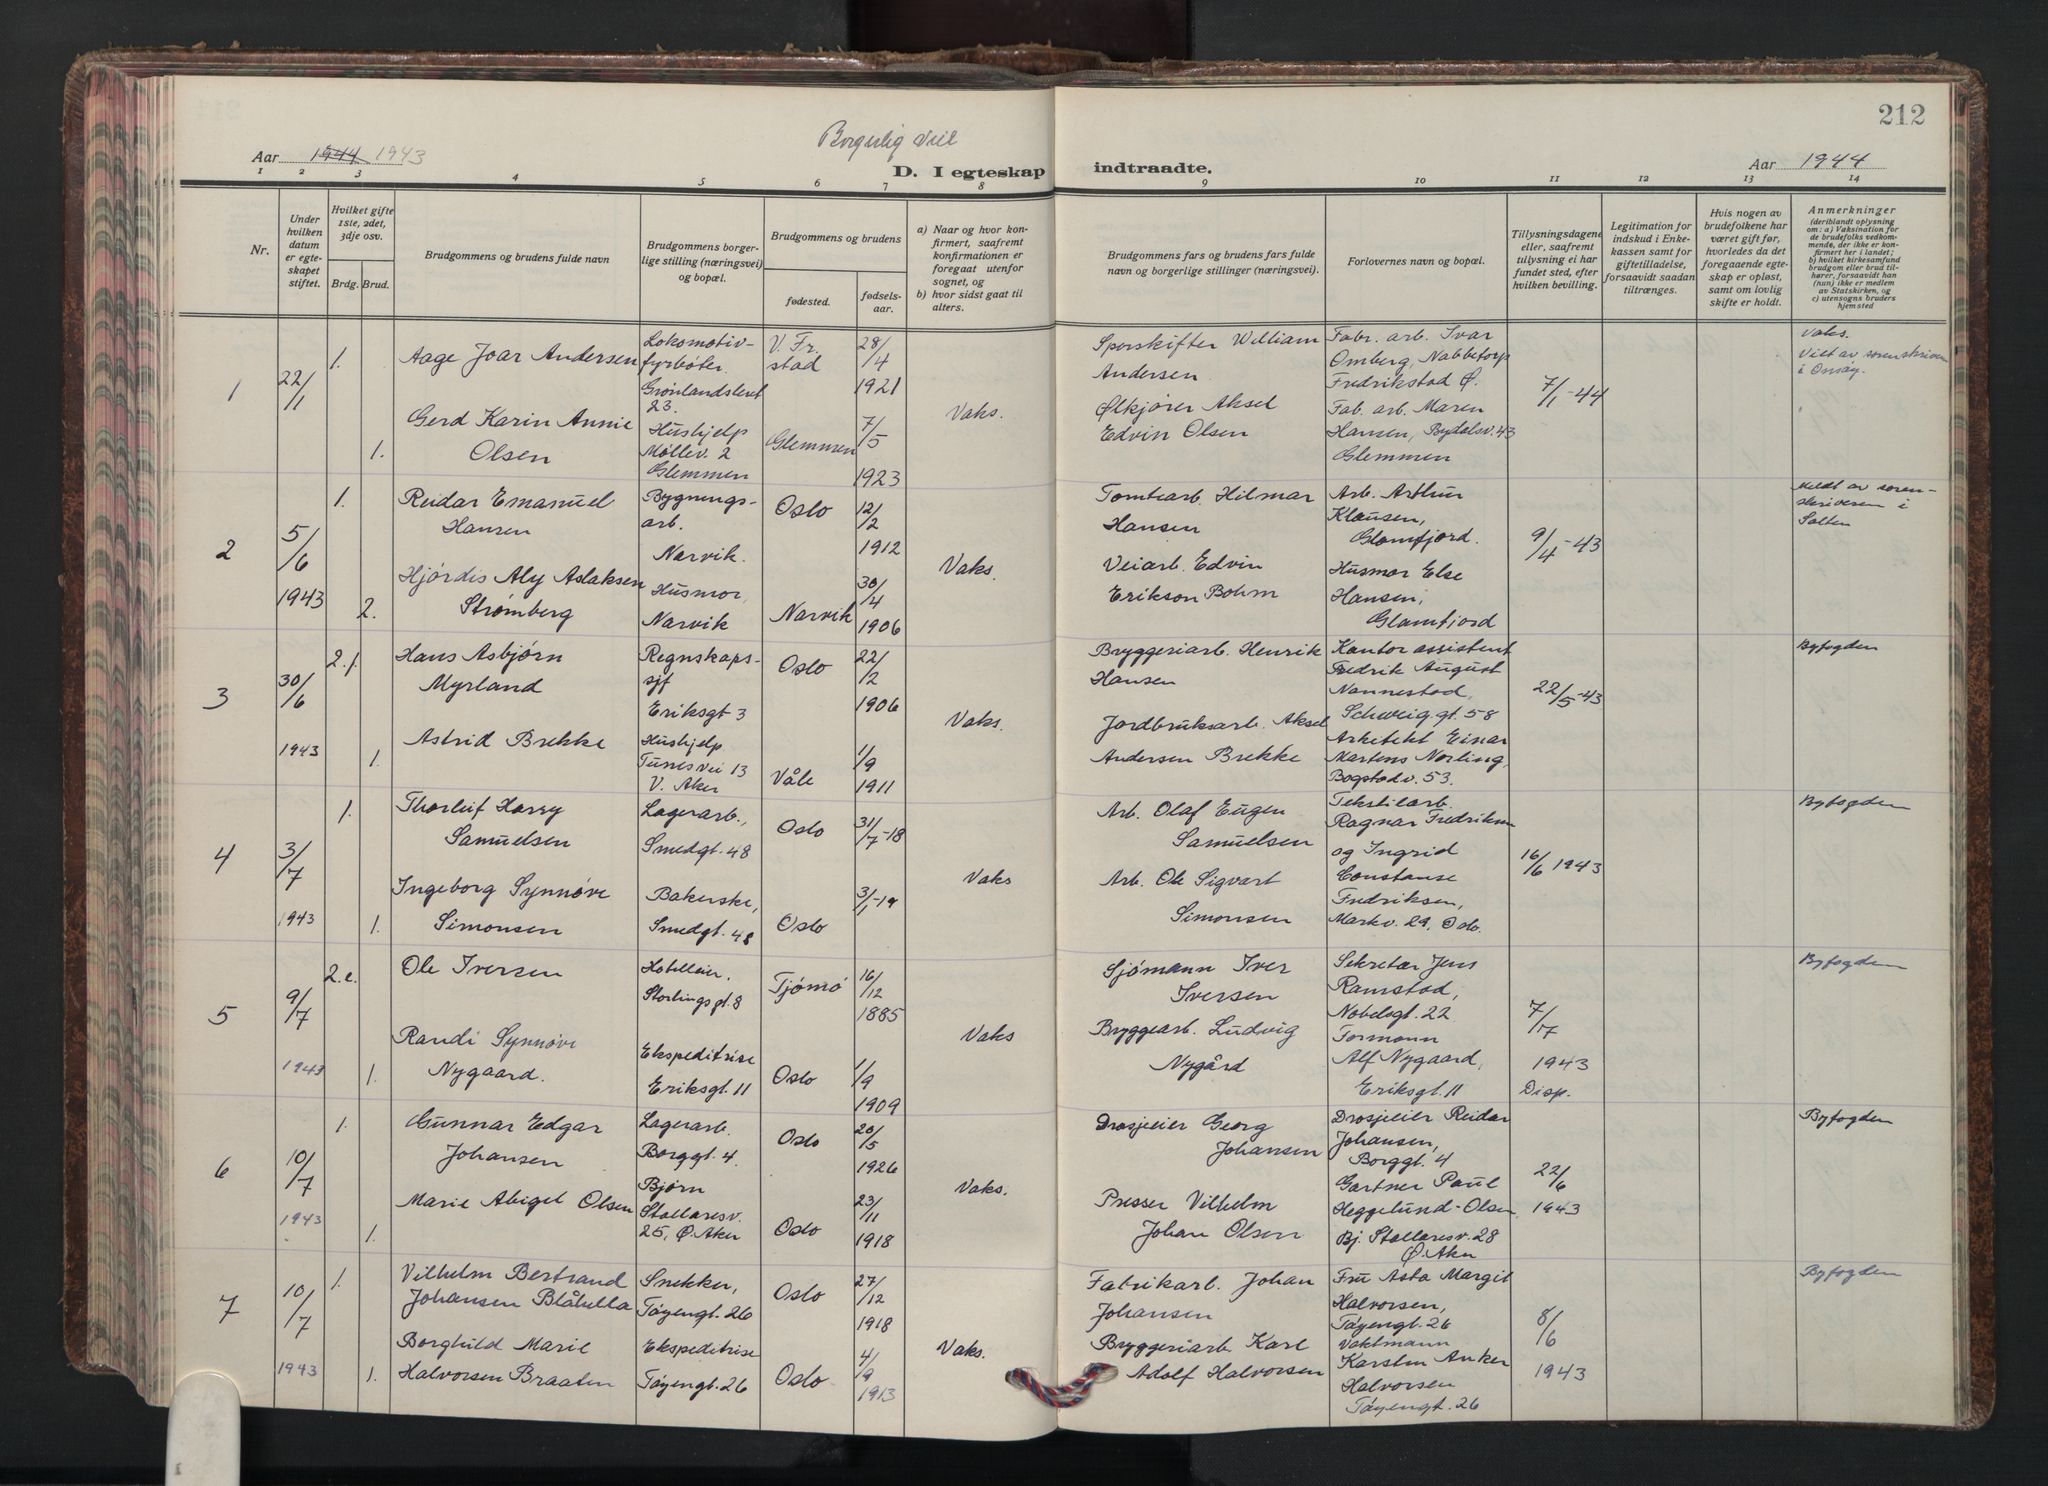 212
Borgerlig viet
Aar 1944 1943
D. I egteskap indtraadte.
Aar 1944
1 2 3 4 5 6 7 8 9 10 11 12 13 14
Nr.
Under hvilken datum er egteskapet stiftet.
Hvilket gifte 1ste, 2det, 3dje osv.
Brdg. Brud.
Brudgommens og brudens fulde navn
Brudgommens borgerlige stilling (næringsvei) og bopæl.
Brudgommens og brudens
fødested. fødselsaar.
a) Naar og hvor konfirmert, saafremt konfirmationen er foregaat utenfor sognet, og
b) hvor sidst gaat til alters.
Brudgommens fars og brudens fars fulde navn og borgerlige stillinger (næringsvei).
Forlovernes navn og bopæl.
Tillysningsdagene eller, saafremt tillysning ei har fundet sted, efter hvilken bevilling.
Legitimation for indskud i Enkekassen samt for giftetilladelse, forsaavidt saadan tiltrænges.
Hvis nogen av brudefolkene har været gift før, hvorledes da det foregaaende egteskap er opløst, samt om lovlig skifte er holdt.
Anmerkninger
(deriblandt oplysning om: a) Vaksination for de brudefolks vedkommende, der ikke er konfirmert her i landet; b) hvilket kirkesamfund brudgom eller brud tilhører, forsaavidt han (hun) ikke er medlem av Statskirken, og c) utensogns bruders hjemsted
1
22/1
1.
Aage Joar Andersen
Lokomotivfyrbøter.
Grønlandsleret 23.
V. Fr.stad
28/4 1921
Sporskifter William Andersen
Fabr. arb. Ivar Omberg, Nabbetorp Fredrikstad Ø.
7/1-44
Vaks.
Viet av sorenskriveren i Onsøy.
1.
Gerd Karin Annie Olsen
Hushjelp
Møllev. 2
Glemmen
Glemmen
7/5 1923
Vaks.
Ølkjører Aksel Edvin Olsen
Fab. arb. Maren Hansen, Bydalsv. 43 Glemmen
2
5/6 1943
1.
Reidar Emanuel Hansen
Bygningsarb.
Narvik.
Oslo
12/2 1912
Tomtearb. Hilmar Hansen
Arb. Arthur Klausen, Glomfjord.
9/4-43
Meldt av sorenskriveren i Salten
2.
Hjørdis Aly Aslaksen Strømberg
Husmor,
Narvik
Narvik
30/4 1906
Vaks.
Veiarb. Edvin Erikson Bohm
Husmor Else Hansen, Glomfjord
3
30/6 1943
2. f.
Hans Asbjørn Myrland
Regnskapssjf
Eriksgt 3
Oslo
22/2 1906
Bryggeriarb. Henrik Hansen
Kontorassistent Fredrik August Nannestad, Schweig.gt. 58
22/5-43
Byfogden
1.
Astrid Brekke
Hushjelp
Tunesvei 13
V. Aker
Våle
1/9 1911
Vaks.
Jordbruksarb. Aksel Andersen Brekke
Arkitekt Einar Martens Norling, Bogstadv. 53.
4
3/7 1943
1.
Thorleif Harry Samuelsen
Lagerarb.,
Smedgt. 48
Oslo
31/7-18
Arb. Olaf Eugen Samuelsen
Tekstilarb. Ragnar Fredriksen og Ingrid Constanse Fredriksen, Markv. 29, Oslo.
16/6 1943
Byfogden
1.
Ingeborg Synnøve Simonsen
Bakerske,
Smedgt. 48
Oslo
3/1-19
Vaks
Arb. Ole Sigvart Simonsen
5
9/7 1943
2. e.
Ole Iversen
Hotelleier.
Stortingsgt. 8
Tjømø
16/12 1885
Sjømann Iver Iversen
Sekretær Jens Ramstad, Nobelsgt. 22
7/7 1943 Disp.
Byfogden
1.
Randi Synnøve Nygaard.
Ekspeditrise
Eriksgt. 11
Oslo
1/9 1909
Vaks
Bryggearb. Ludvig Nygård
Formann Alf Nygaard, Eriksgt. 11
6
10/7 1943
1.
Gunnar Edgar Johansen
Lagerarb.
Borggt. 4.
Oslo
20/5 1926
Drosjeeier Georg Johansen
Drosjeeier Reidar Johansen, Borggt. 4
22/6 1943
Byfogden
1.
Marie Abigel Olsen
Bjørn Stallaresv. 25, Ø. Aker
Oslo
23/11 1918
Vaks.
Presser Vilhelm Johan Olsen
Gartner Paul Heggelund-Olsen, Bj. Stallaresv. 28 Ø. Aker
7
10/7 1943
1.
Vilhelm Bertrand Johansen Blåhella
Snekker,
Tøyengt. 26
Oslo
27/12 1918
Fabrikarb. Johan Johansen
Fru Asta Margit Halvorsen, Tøyengt. 26
8/6 1943
Byfogden
1.
Borghild Marie Halvorsen Braaten
Ekspeditrise
Tøyengt. 26
Oslo
4/9 1913
Vaks.
Bryggeriarb. Karl Adolf Halvorsen
Vaktmann Karsten Anker Halvorsen Tøyengt. 26